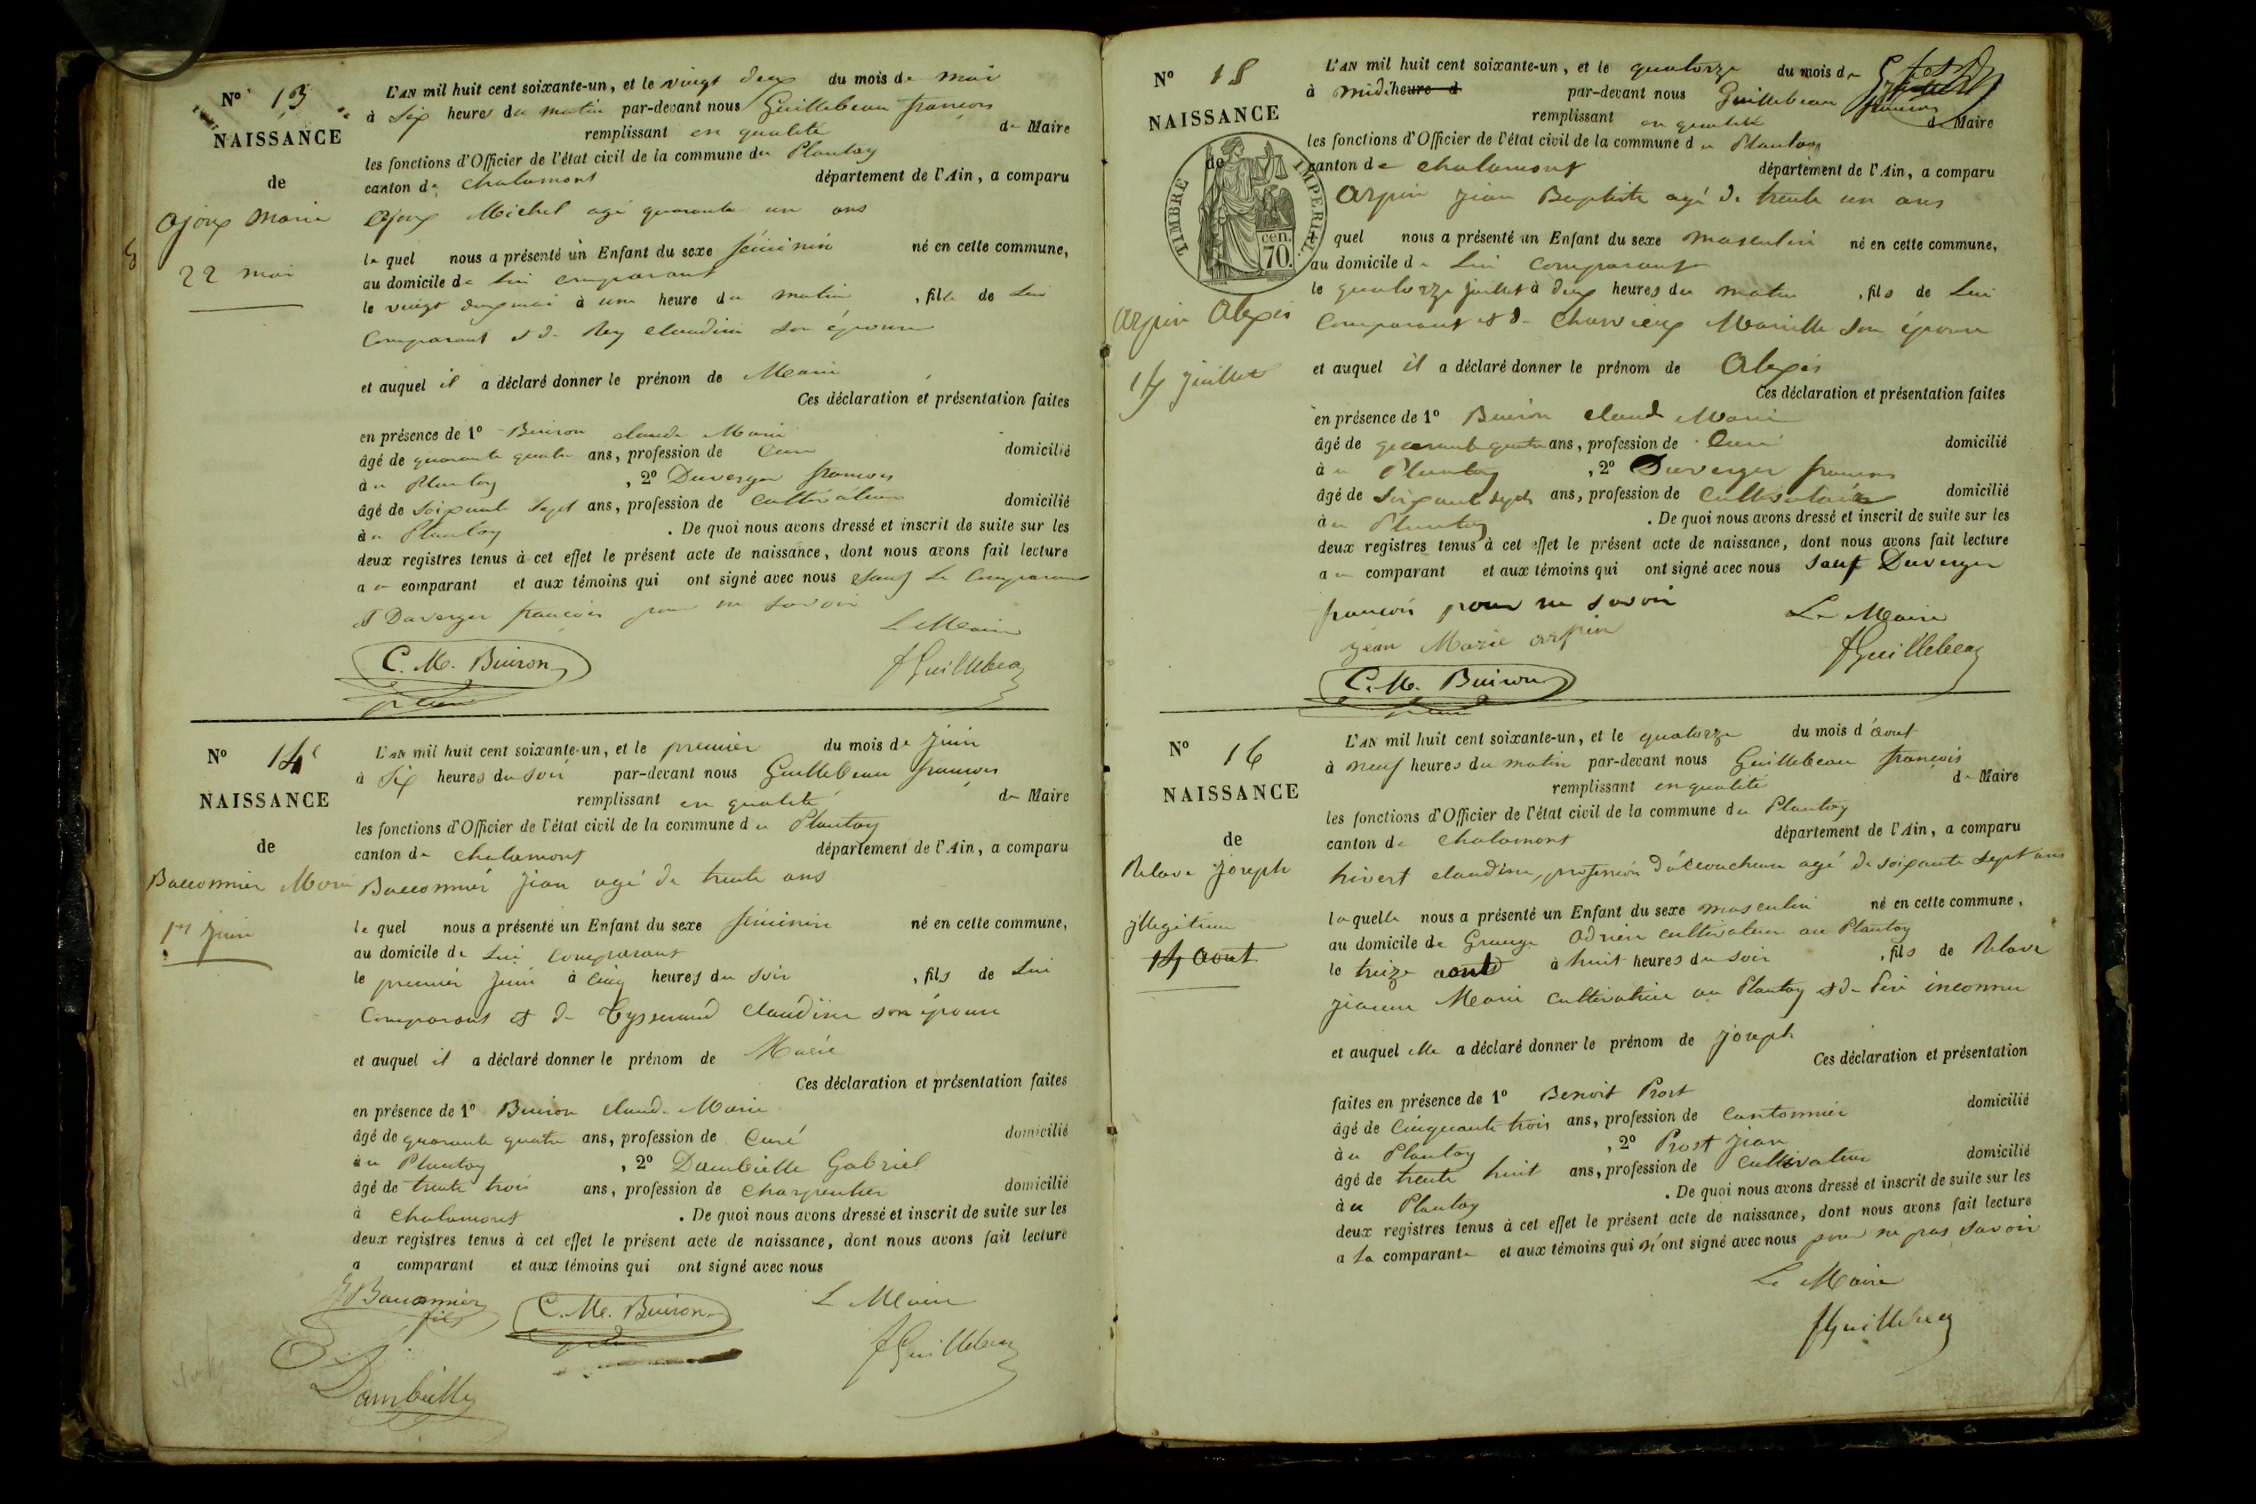 N° 13
NAISSANCE
de
Ajoux Marie
22 mai
L'AN mil huit cent soixante-un, et le vingt deux du mois de mai
à Six heures du matin par-devant nous Guillebeau françois
remplissant en qualité de Maire
les fonctions d'Officier de l'état civil de la commune du Plantay
canton de chalamont département de l'Ain, a comparu
Ajoux Michel agé quarante un ans
le quel nous a présenté un Enfant du sexe féminin né en cette commune,
au domicile de Lui comparant
le vingt deux mai à une heure du matin , fille de Lui
Comparant et de Rey claudine son épouse
et auquel il a déclaré donner le prénom de Marie
Ces déclaration et présentation faites
en présence de 1° Buiron claude Marie
âgé de quarante quatre ans, profession de Curé domicilié
à u Plantay , 2° Duverger françois
âgé de Soixante Sept ans, profession de Cultivateur domicilié
à u Plantay . De quoi nous avons dressé et inscrit de suite sur les
deux registres tenus à cet effet le présent acte de naissance, dont nous avons fait lecture
a u comparant et aux témoins qui ont signé avec nous Sauf Le Comparant
et Duverger françois pour ne savoir
Le Maire
C. M. Buiron
fGuillebeau
N° 14
NAISSANCE
de
Bacconnier Marie
1er Juin
L'AN mil huit cent soixante-un, et le premier du mois de Juin
à Six heures du soir par-devant nous Guillebeau françois
remplissant en qualité de Maire
les fonctions d'Officier de l'état civil de la commune du Plantay
canton de chalamont département de l'Ain, a comparu
Bacconnier Jean agé de trente ans
le quel nous a présenté un Enfant du sexe féminin né en cette commune,
au domicile de Lui comparant
le premier Juin à Cinq heures du soir , fils de Lui
Comparant et de Tysserand claudine son épouse
et auquel il a déclaré donner le prénom de Marie
Ces déclaration et présentation faites
en présence de 1° Buiron claude Marie
âgé de quarante quatre ans, profession de Curé domicilié
à u Plantay , 2° Dambielle Gabriel
âgé de trente trois ans, profession de Charpentier domicilié
à Chalamont . De quoi nous avons dressé et inscrit de suite sur les
deux registres tenus à cet effet le présent acte de naissance, dont nous avons fait lecture
a comparant et aux témoins qui ont signé avec nous
Bacconnier fils
C. M. Buiron
Le Maire
fGuillebeau
Dambielle
N° 15
NAISSANCE
de
TIMBRE IMPERIAL
70 cen.
Arpin Alexis
14 Juillet
L'AN mil huit cent soixante-un, et le quatorze du mois de
à midi heure d par-devant nous Guillebeau françois
remplissant en qualité de Maire
les fonctions d'Officier de l'état civil de la commune du Plantay
canton de chalamont département de l'Ain, a comparu
Arpin Jean Baptiste agé de trente un ans
quel nous a présenté un Enfant du sexe masculin né en cette commune,
au domicile de Lui comparant
le quatorze Juillet à deux heures du matin , fils de Lui
Comparant et de Mariette son épouse
et auquel il a déclaré donner le prénom de Alexis
Ces déclaration et présentation faites
en présence de 1° Buiron claude Marie
âgé de quarante quatre ans, profession de Curé domicilié
à u Plantay , 2° Duverger françois
âgé de Soixante Sept ans, profession de Cultivateur domicilié
à u Plantay . De quoi nous avons dressé et inscrit de suite sur les
deux registres tenus à cet effet le présent acte de naissance, dont nous avons fait lecture
a u comparant et aux témoins qui ont signé avec nous Sauf Duverger
françois pour ne savoir
Le Maire
Jean Marie arpin
fGuillebeau
C. M. Buiron
N° 16
NAISSANCE
de
Relave Joseph
jllegitime
14 aout
L'AN mil huit cent soixante-un, et le quatorze du mois d'aout
à neuf heures du matin par-devant nous Guillebeau françois
remplissant en qualité de Maire
les fonctions d'Officier de l'état civil de la commune du Plantay
canton de chalamont département de l'Ain, a comparu
hivert claudine, profession d'accoucheuse agé de soixante sept ans
laquelle nous a présenté un Enfant du sexe masculin né en cette commune,
au domicile de Grange Adrien cultivateur au Plantay
le treize aout à huit heures du soir , fils de Relave
Jeanne Marie cultivatrice au Plantay et de Père inconnu
et auquel elle a déclaré donner le prénom de Joseph
Ces déclaration et présentation
faites en présence de 1° Benoit Prost
âgé de Cinquante trois ans, profession de Cantonnier domicilié
à u Plantay , 2° Prost Jean
âgé de trente huit ans, profession de Cultivateur domicilié
à u Plantay . De quoi nous avons dressé et inscrit de suite sur les
deux registres tenus à cet effet le présent acte de naissance, dont nous avons fait lecture
a la comparante et aux témoins qui n'ont signé avec nous pour ne pas savoir
Le Maire
fGuillebeau